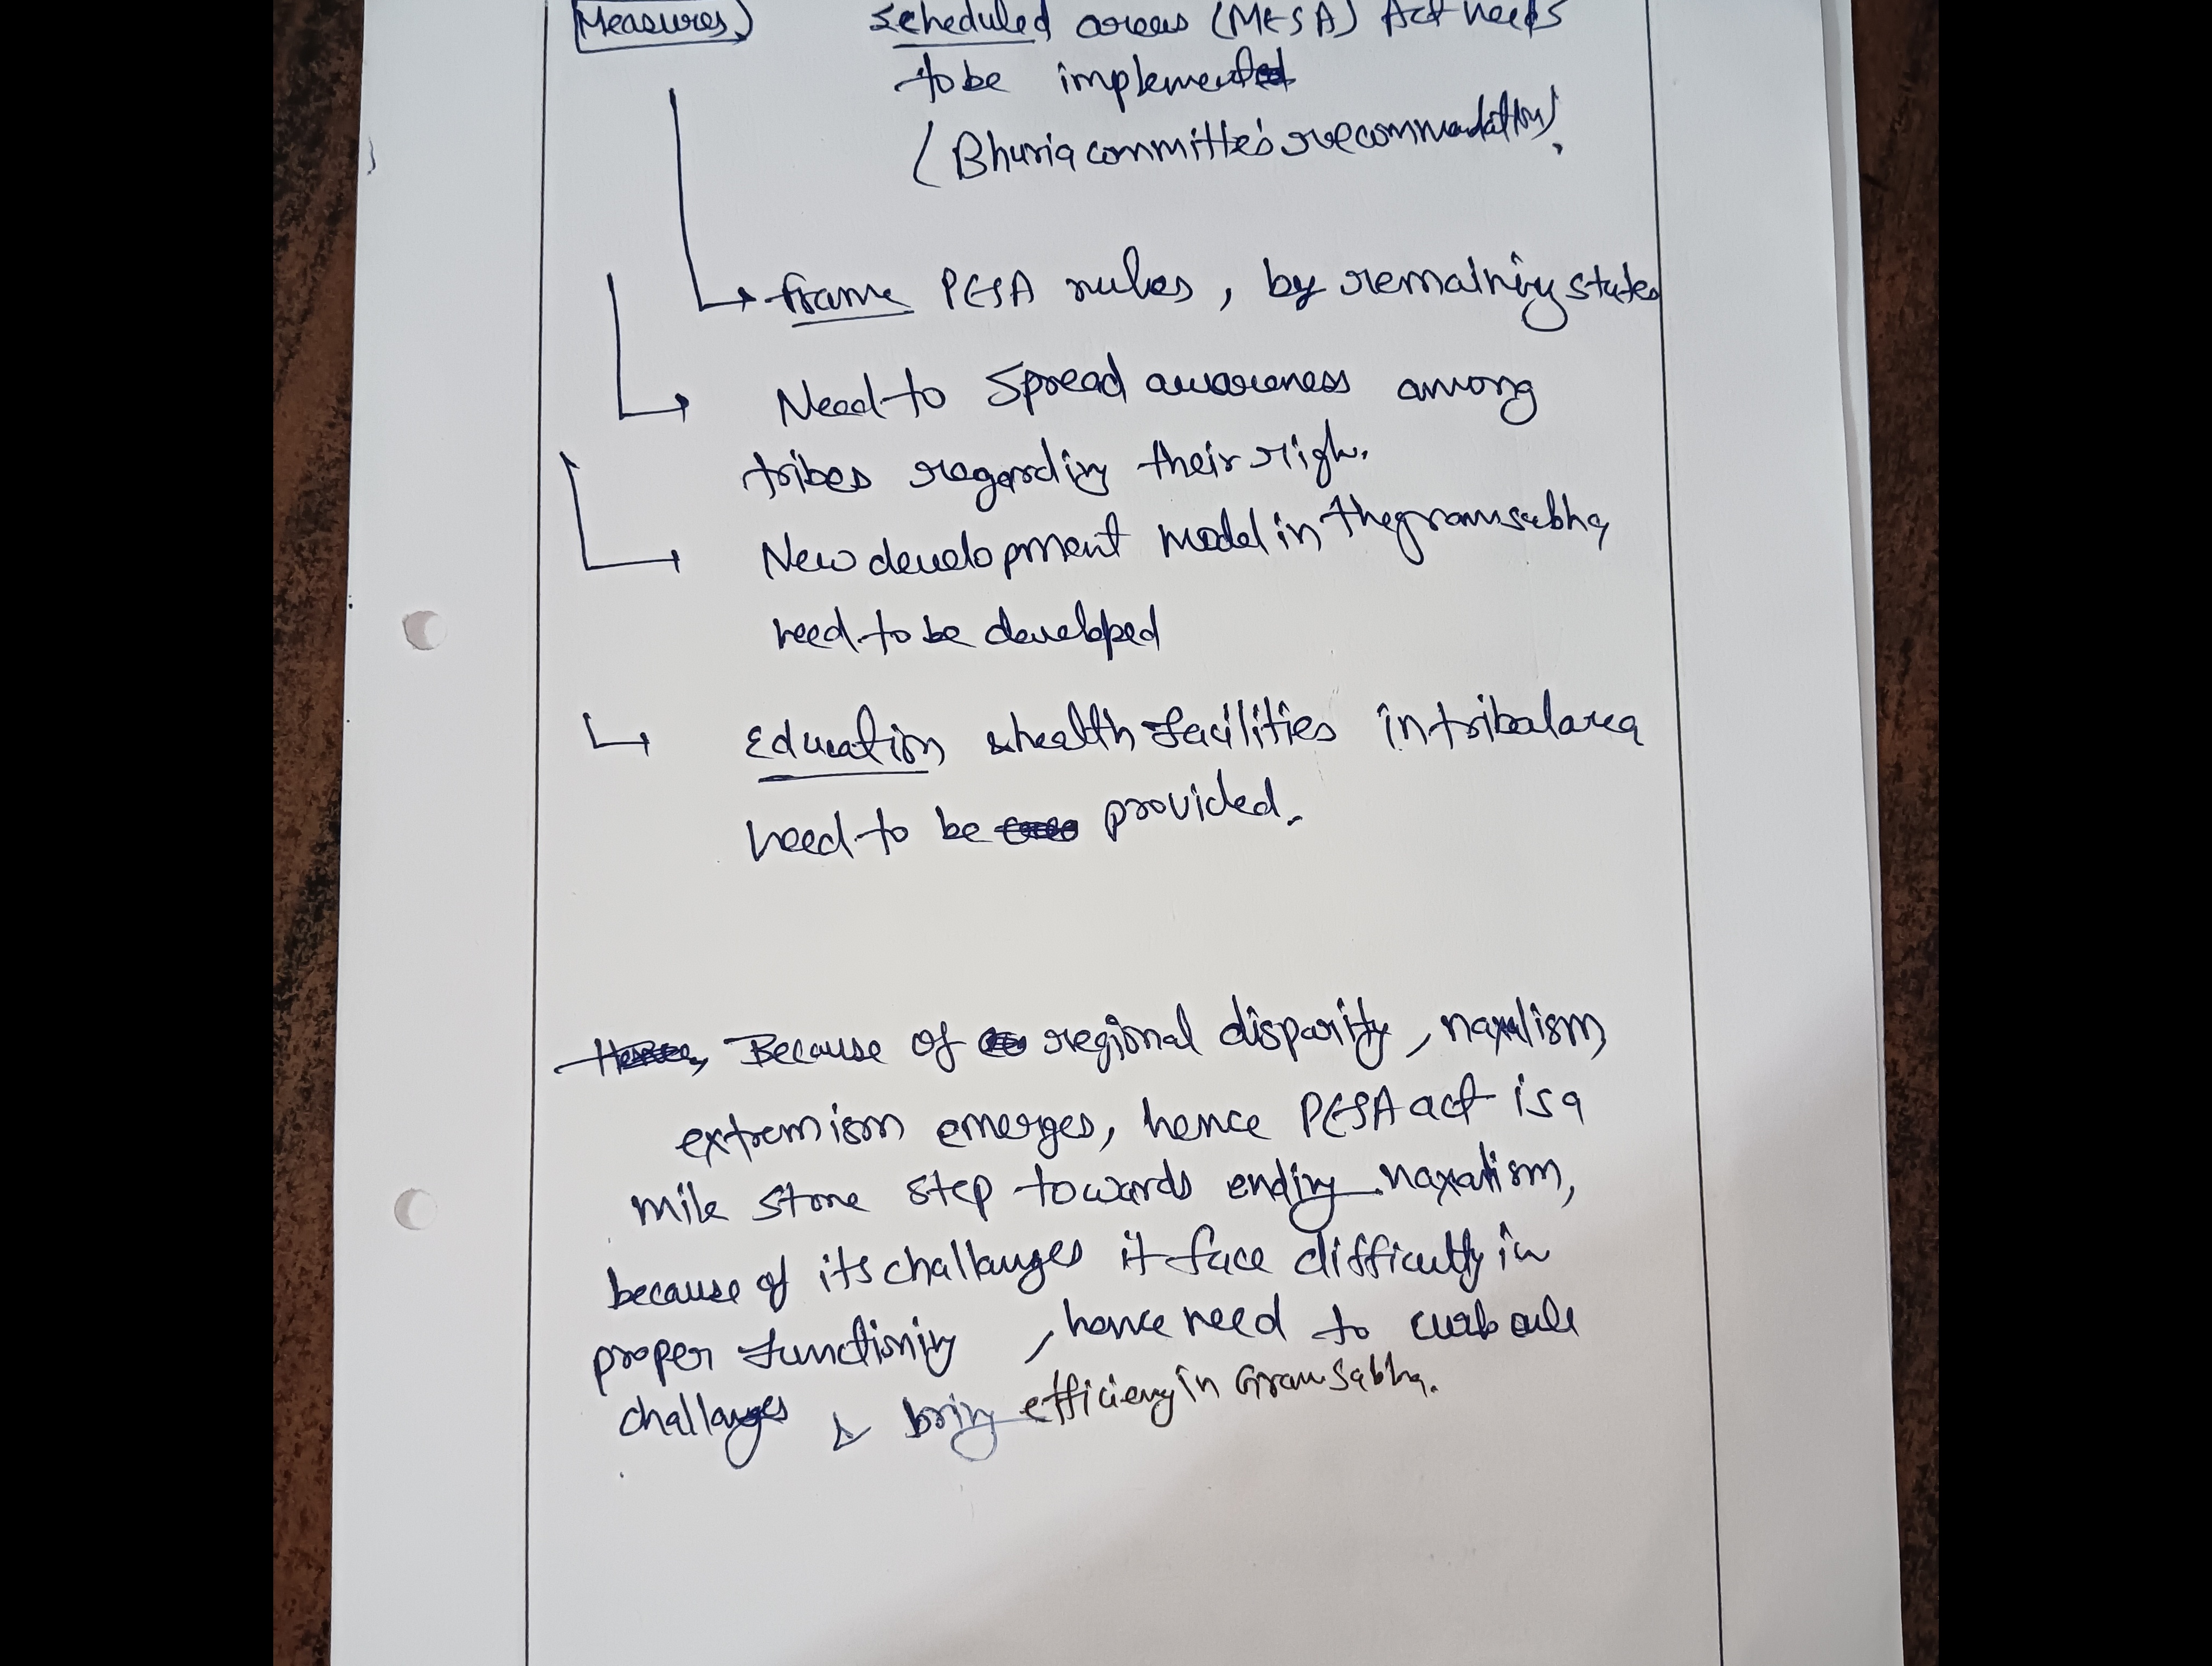 Measures) scheduled areas (MESA) Act needs
to be implemented
(Bhuria committe's recommadation),
frame PESA rules, by remaining states
Need to spread awareness among
tribes regarding their righ.
New development model in the gramsabha
need to be developed
Education & health facilities in tribal area
need to be provided.
Because of regional disparity, naxalism,
extremism emerges, hence PESA act is a
mile stone step towards ending naxalism,
because of its challanges it face difficulty in
proper functioning, hence need to curb all
challanges & bring efficiency in Gram Sabha.